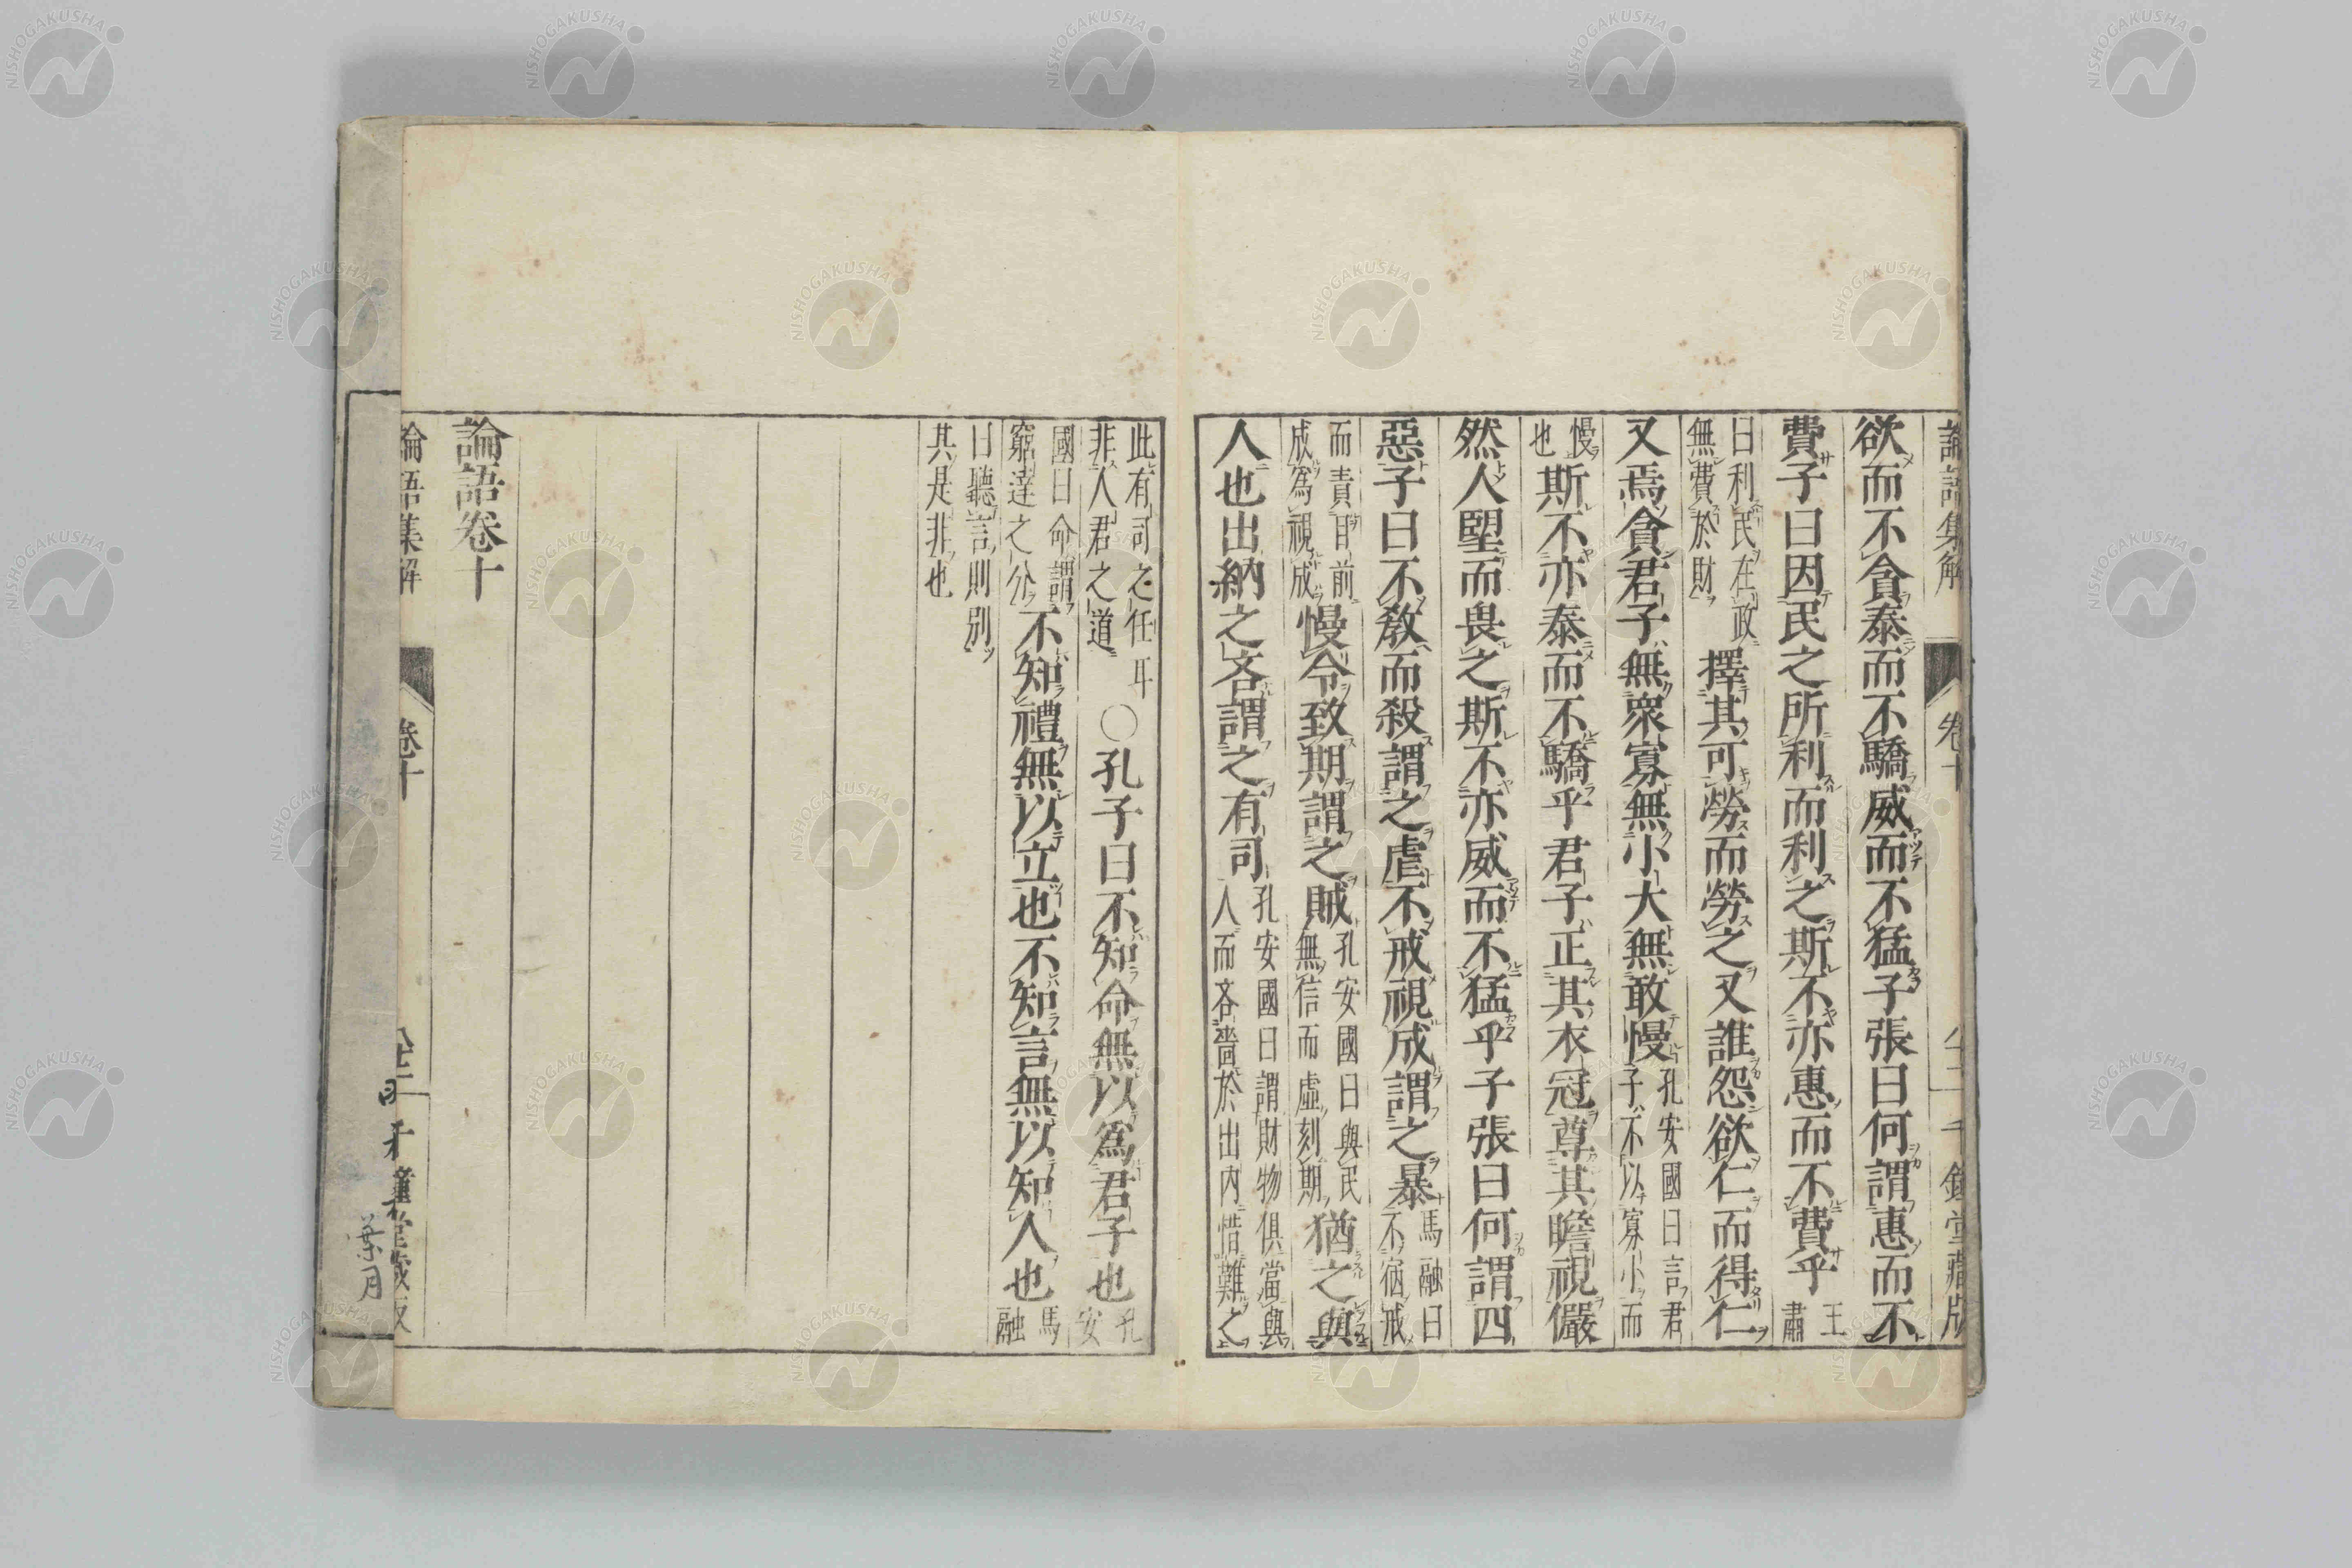 論語集解 卷十
欲而不貪泰而不驕威而不猛子張曰何謂惠而不
費子曰因民之所利而利之斯不亦惠而不費乎王肅
曰利民在政無費於財擇其可勞而勞之又誰怨欲仁而得仁
又焉貪君子無衆寡無小大無敢慢孔安國曰言君子不以寡小而
慢也斯不亦泰而不驕乎君子正其衣冠尊其瞻視儼
然人朢而畏之斯不亦威而不猛乎子張曰何謂四
惡子曰不敎而殺謂之虐不戒視成謂之暴馬融曰不宿戒
而責目前成爲視成慢令致期謂之賊孔安國曰與民無信而虛刻期猶之與
人也出納之吝謂之有司孔安國曰謂財物俱當與人而吝嗇於出内惜難之
此有司之任耳非人君之道〇孔子曰不知命無以爲君子也孔安
國曰命謂窮達之分不知禮無以立也不知言無以知人也馬融
曰聽言則別其是非也
論語卷十
論語集解 卷十
葉月
NISHOGAKUSHA